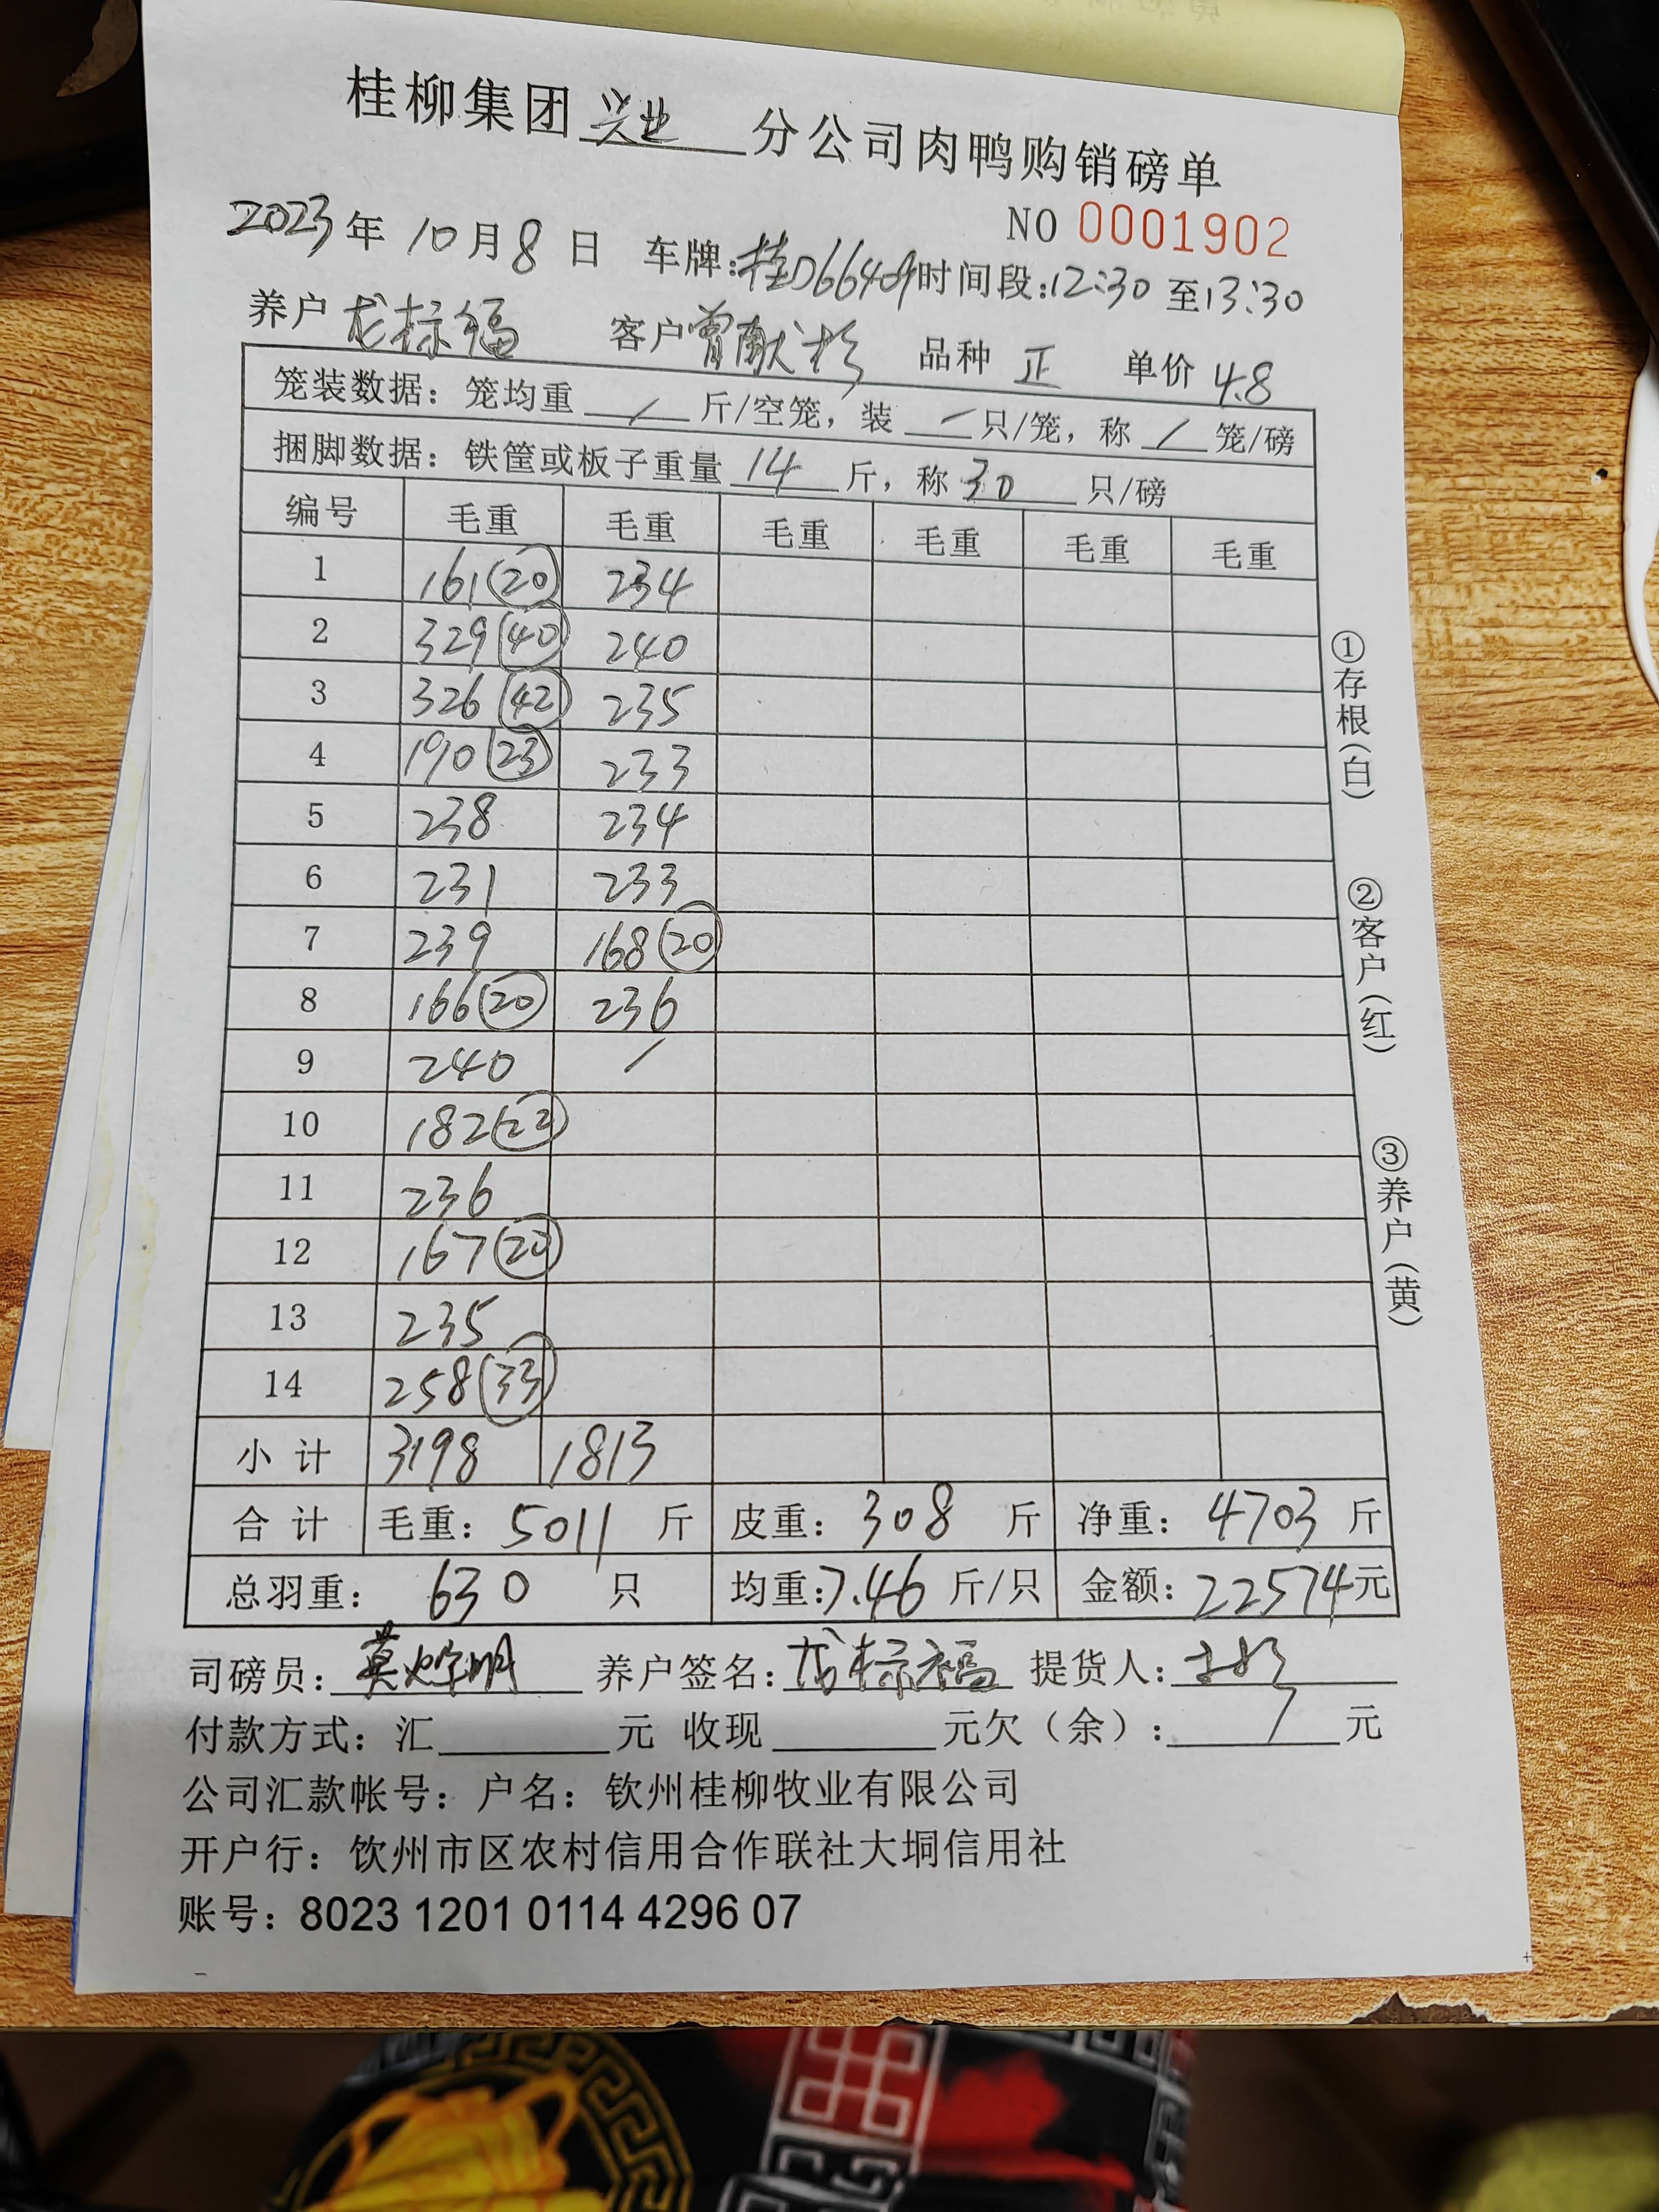 桂柳集团兴业分公司肉鸭购销磅单
NO 0001902
2023年10月8日 车牌:桂D66409时间段:12:30至13:30
养户 龙标福 客户 曾献 品种 正 单价 4.8
笼装数据：笼均重 / 斤/空笼，装 / 只/笼，称 / 笼/磅
捆脚数据：铁筐或板子重量 14 斤，称 30 只/磅
编号 毛重 毛重 毛重 毛重 毛重 毛重
1 161(20) 234
2 329(40) 240
3 326(42) 235
4 190(23) 233
5 238 234
6 231 233
7 239 168(20)
8 166(20) 236
9 240 /
10 182
11 236
12 167(20)
13 235
14 258(33)
小计 3198 1813
合计 毛重：5011 斤 皮重：308 斤 净重：4703 斤
总羽重：630 只 均重：7.46 斤/只 金额：22574元
①存根(白) ②客户(红) ③养户(黄)
司磅员：莫 明 养户签名：龙标福 提货人：
付款方式：汇 元 收现 元欠（余）： / 元
公司汇款帐号：户名：钦州桂柳牧业有限公司
开户行：饮州市区农村信用合作联社大垌信用社
账号：8023 1201 0114 4296 07